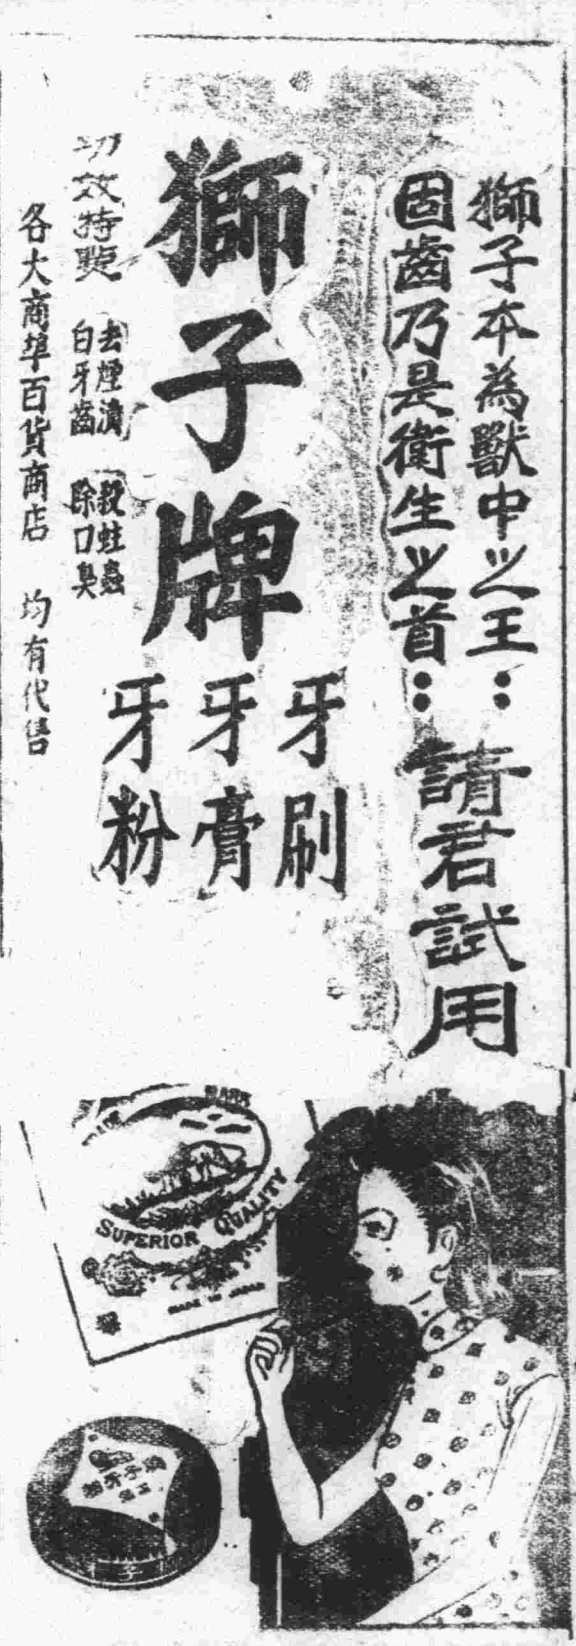 獅子本為獸中之王：
固齒乃是衛生之首：
請君試用
獅子牌
牙刷
牙膏
牙粉
功效特點
去煙漬
白牙齒
殺蛀蟲
除口臭
各大商埠百貨商店 均有代售
MARK
SUPERIOR QUALITY
MADE IN JAPAN